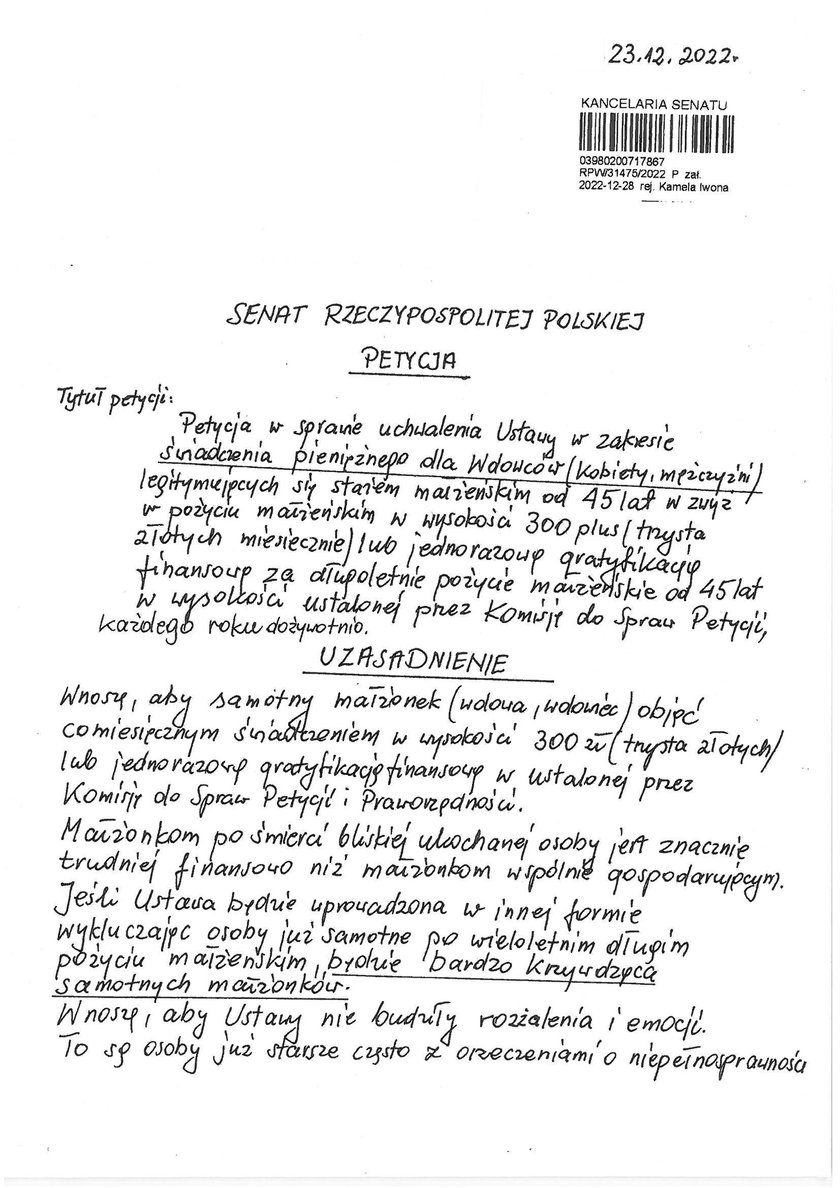 23.12.2022r
KANCELARIA SENATU
03980200717867
RPW/31475/2022 P zał.
2022-12-28 rej. Kamela Iwona
SENAT RZECZYPOSPOLITEJ POLSKIEJ
PETYCJA
Tytuł petycji:
Petycja w sprawie uchwalenia Ustawy w zakresie
świadczenia pieniężnego dla Wdowców (kobiety, mężczyźni)
legitymujących się stażem małżeńskim od 45 lat w zwyż
w pożyciu małżeńskim w wysokości 300 plus (trzysta
złotych miesięcznie) lub jednorazową gratyfikację
finansową za długoletnie pożycie małżeńskie od 45 lat
w wysokości ustalonej przez Komisję do Spraw Petycji,
każdego roku dożywotnio.
UZASADNIENIE
Wnoszę, aby samotny małżonek (wdowa, wdowiec) objąć
comiesięcznym świadczeniem w wysokości 300 zł (trzysta złotych)
lub jednorazową gratyfikację finansową w ustalonej przez
Komisję do Spraw Petycji i Praworządności.
Małżonkom po śmierci bliskiej ukochanej osoby jest znacznie
trudniej finansowo niż małżonkom wspólnie gospodarującym.
Jeśli Ustawa będzie uprowadzona w innej formie
wykluczając osoby już samotne po wieloletnim długim
pożyciu małżeńskim, będzie bardzo krzywdzącą
samotnych małżonków.
Wnoszę, aby Ustawy nie budziły rozżalenia i emocji.
To są osoby już starsze często z orzeczeniami o niepełnosprawności